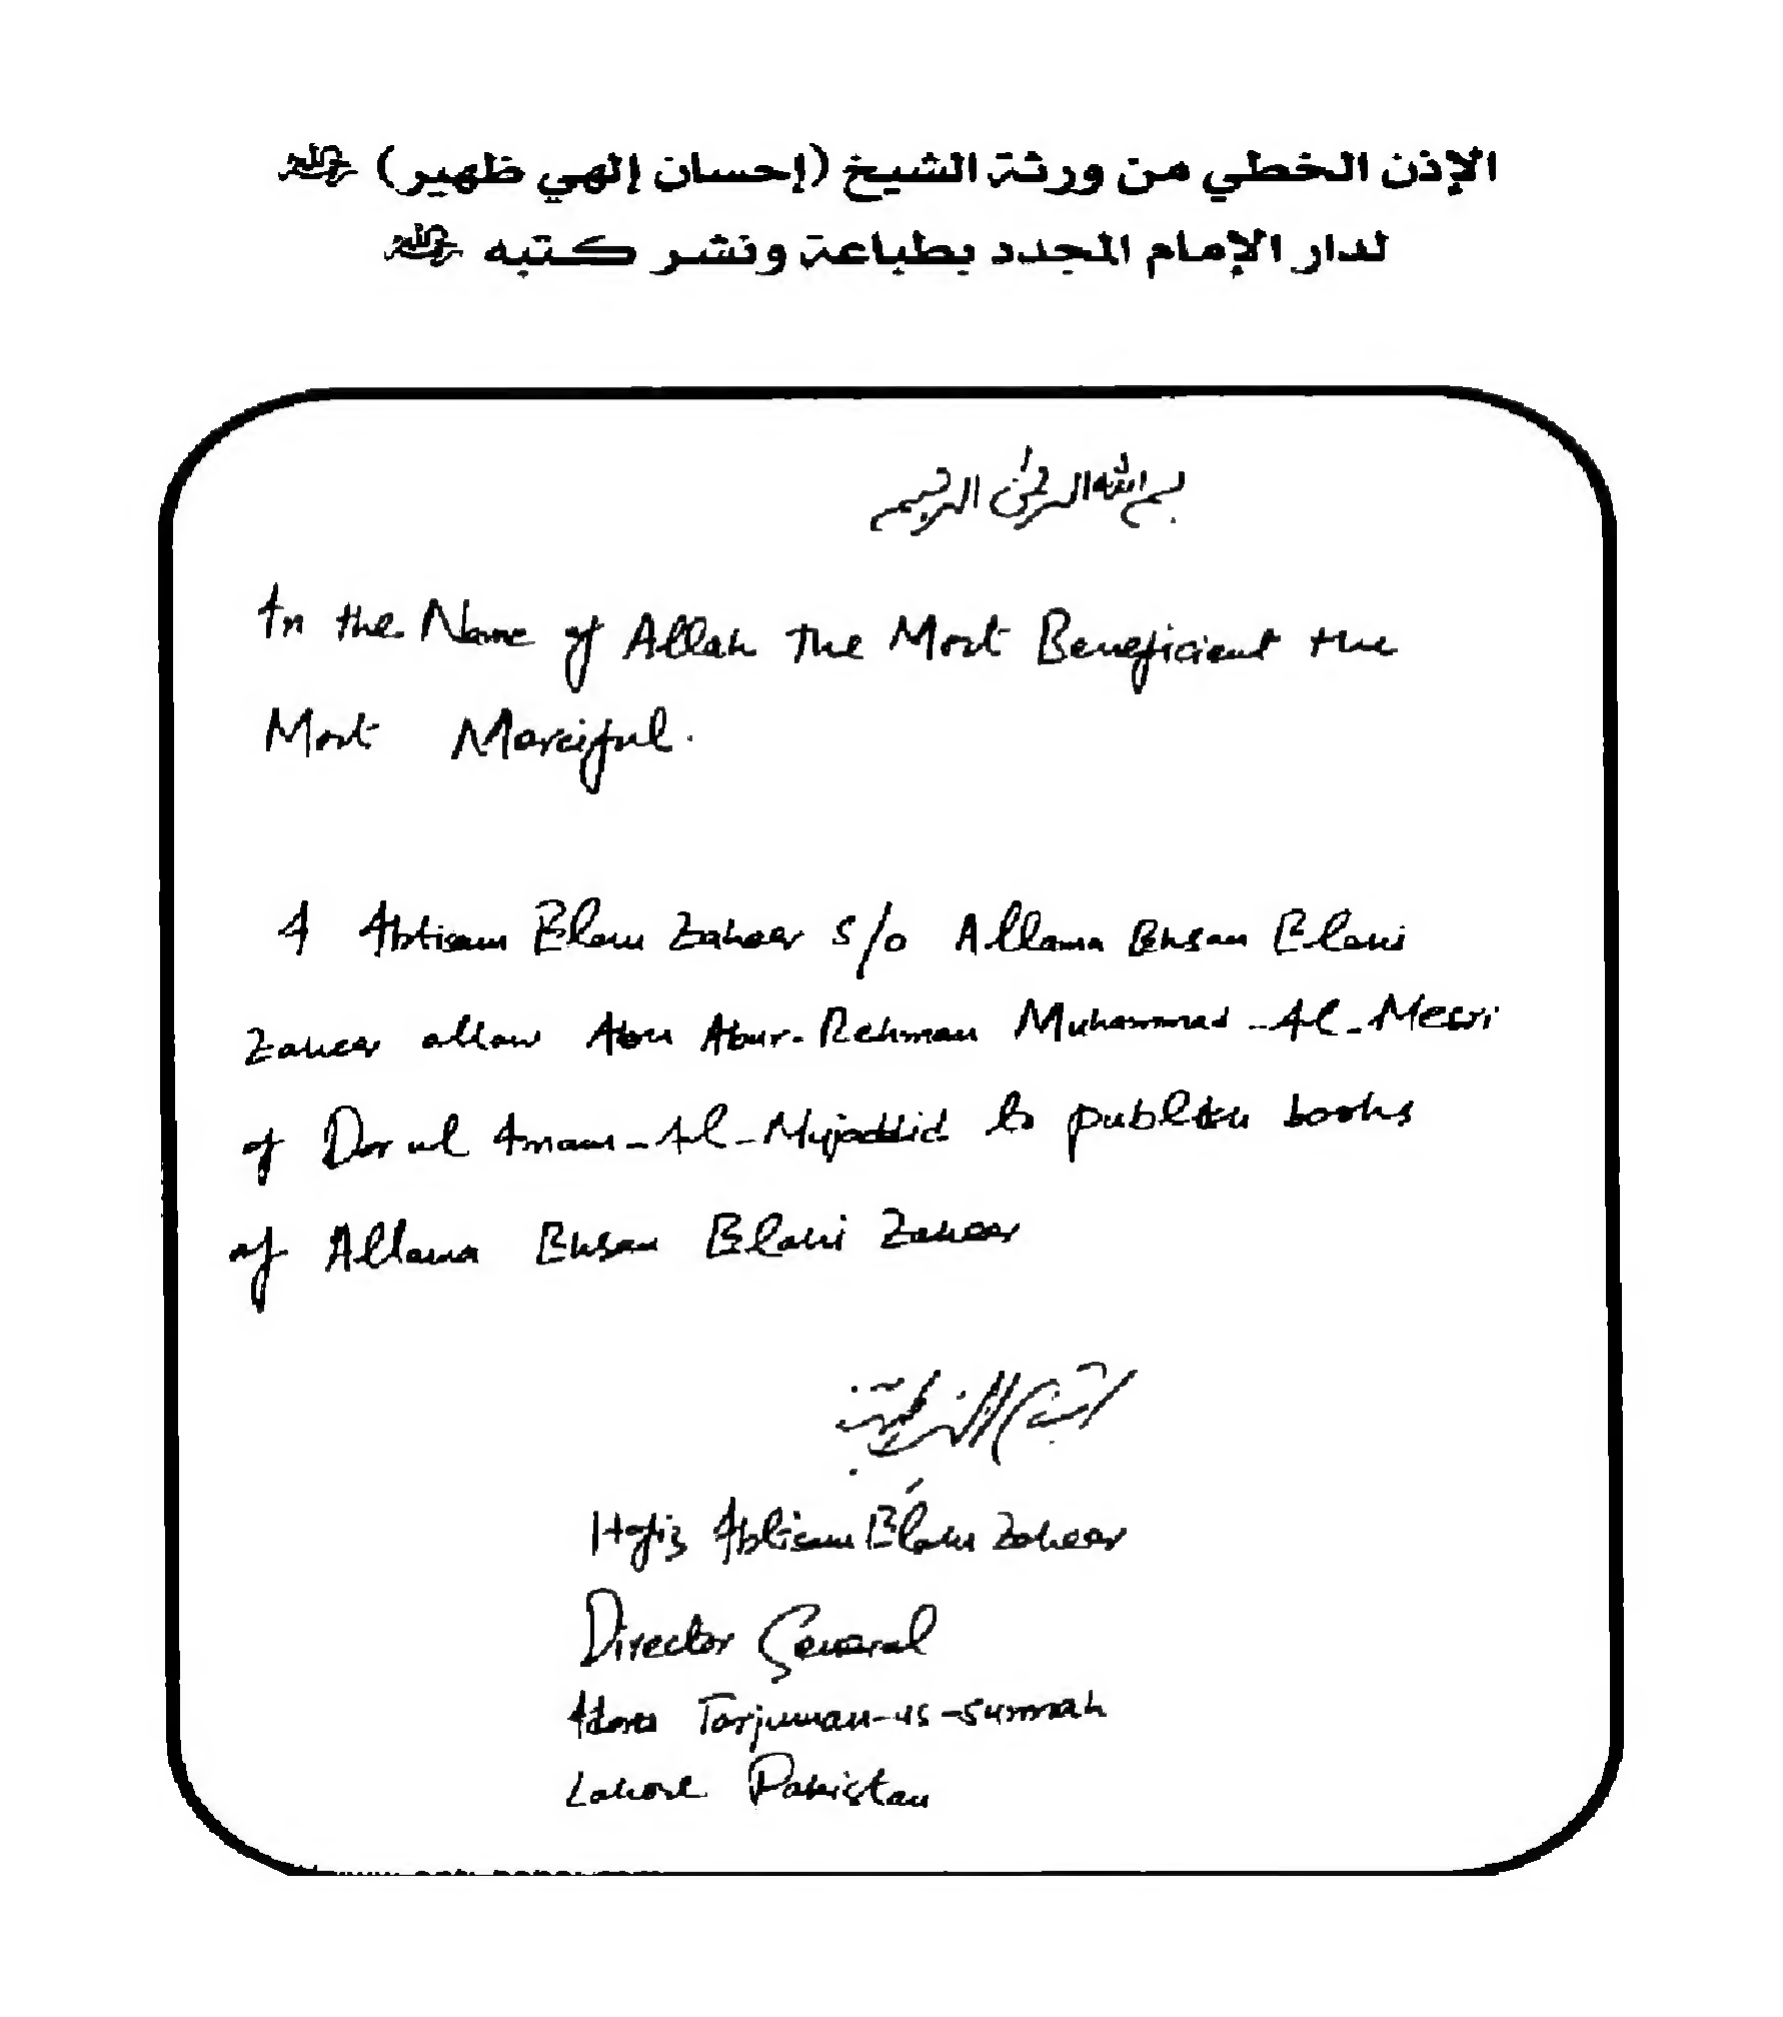 الإذن الخطي من ورثة الشيخ (إحسان إلهي ظهير) رحمه الله
لدار الإمام المجدد بطباعة ونشر كتبه رحمه الله
بسم الله الرحمن الرحيم
In the Name of Allah The Most Beneficient the
Most Merciful.
I Ibtisam Elahi Zaheer S/o Allama Ehsan Elahi
Zaheer allow Abu Abur-Rehman Muhammad-Al-Mesri
of Dar ul Imam-Al-Mujaddid to publish books
of Allama Ehsan Elahi Zaheer
Hafiz Ibtisam Elahi Zaheer
Director General
Idara Tarjuman-us-Sunnah
Lahore Pakistan